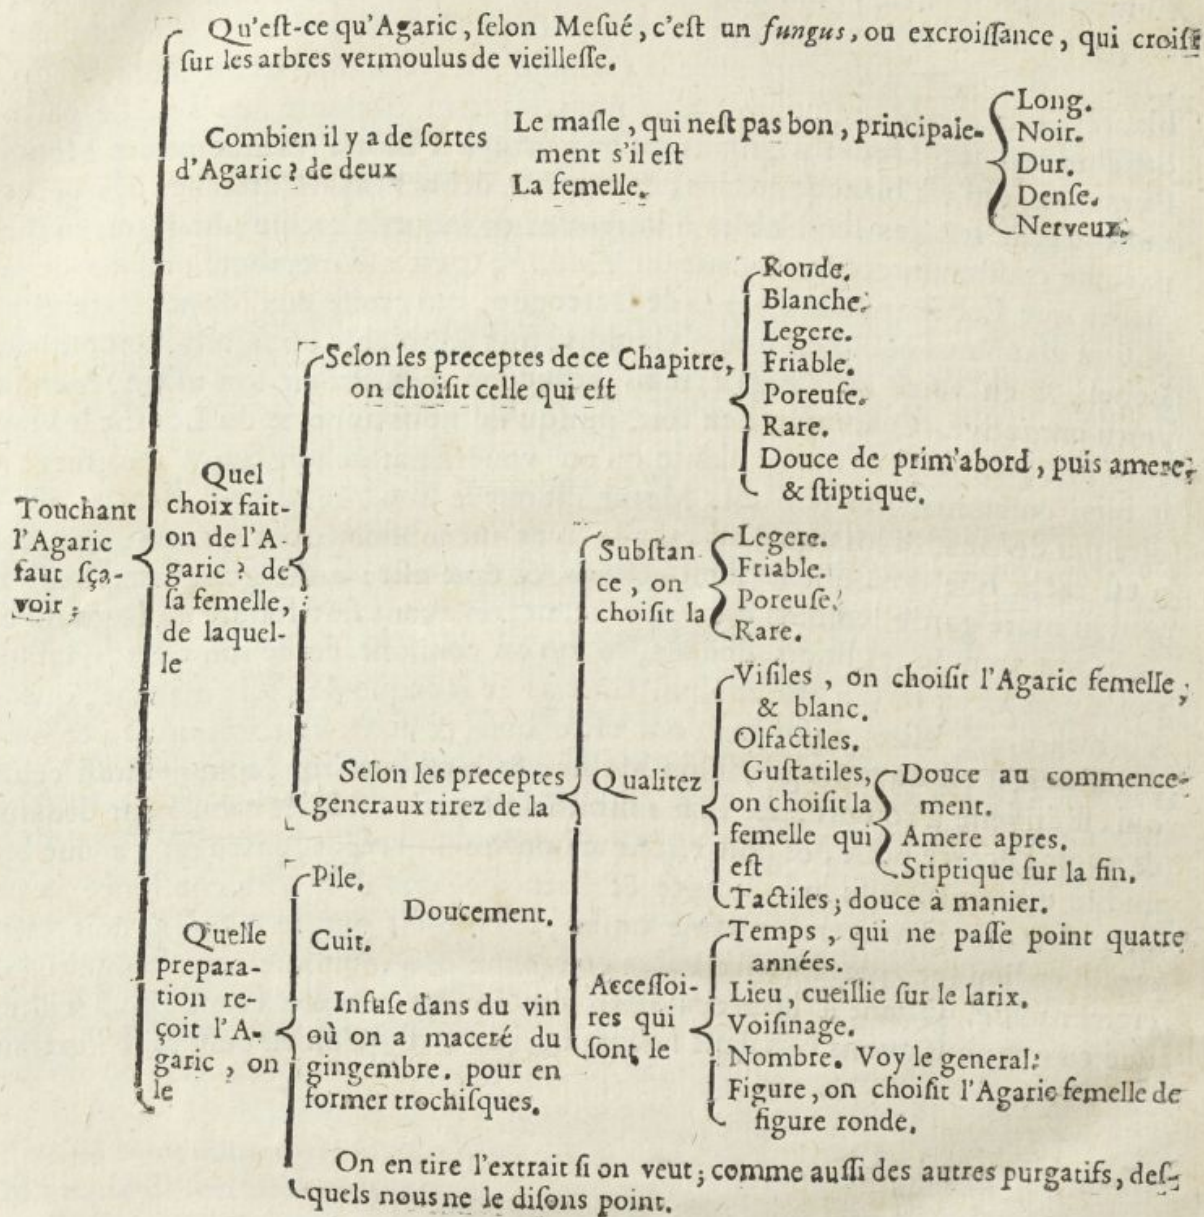 Qu'eſt-ce qu'Agaric, ſelon Meſué, c'eſt un fungus, ou excroiſſance, qui croiſt
ſur les arbres vermoulus de vieilleſſe.
Combien il y a de ſortes
d'Agaric ? de deux
Le maſle, qui neſt pas bon, principale-
ment s'il eſt
La femelle.
Long.
Noir.
Dur.
Denſe.
Nerveux.
Touchant
l'Agaric
faut ſça-
voir ;
Quel
choix fait-
on de l'A-
garic ? de
ſa femelle,
de laquel-
le
Selon les preceptes de ce Chapitre,
on choiſit celle qui eſt
Ronde.
Blanche.
Legere.
Friable.
Poreuſe.
Rare.
Douce de prim'abord, puis amere,
& ſtiptique.
Selon les preceptes
generaux tirez de la
Subſtan-
ce, on
choiſit la
Legere.
Friable.
Poreuſe.
Rare.
Qualitez
Viſiles, on choiſit l'Agaric femelle,
& blanc.
Olfactiles.
Guſtatiles,
on choiſit la
femelle qui
eſt
Douce au commence-
ment.
Amere apres.
Stiptique ſur la fin.
Tactiles ; douce à manier.
Acceſſoi-
res qui
ſont le
Temps, qui ne paſſe point quatre
années.
Lieu, cueillie ſur le larix.
Voiſinage.
Nombre. Voy le general.
Figure, on choiſit l'Agaric femelle de
figure ronde.
Quelle
prepara-
tion re-
çoit l'A-
garic, on
le
Pile.
Doucement.
Cuit.
Infuſe dans du vin
où on a maceré du
gingembre. pour en
former trochiſques.
On en tire l'extrait ſi on veut ; comme auſſi des autres purgatifs, deſ-
quels nous ne le diſons point.